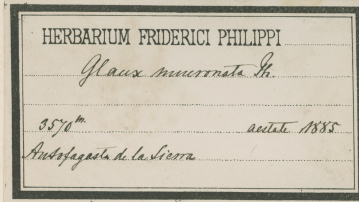 HERBARIUM FRIDERICI PHILIPPI
Glaux mucronata Ph.
3570 m. aestate 1885
Antofagasta de la Sierra